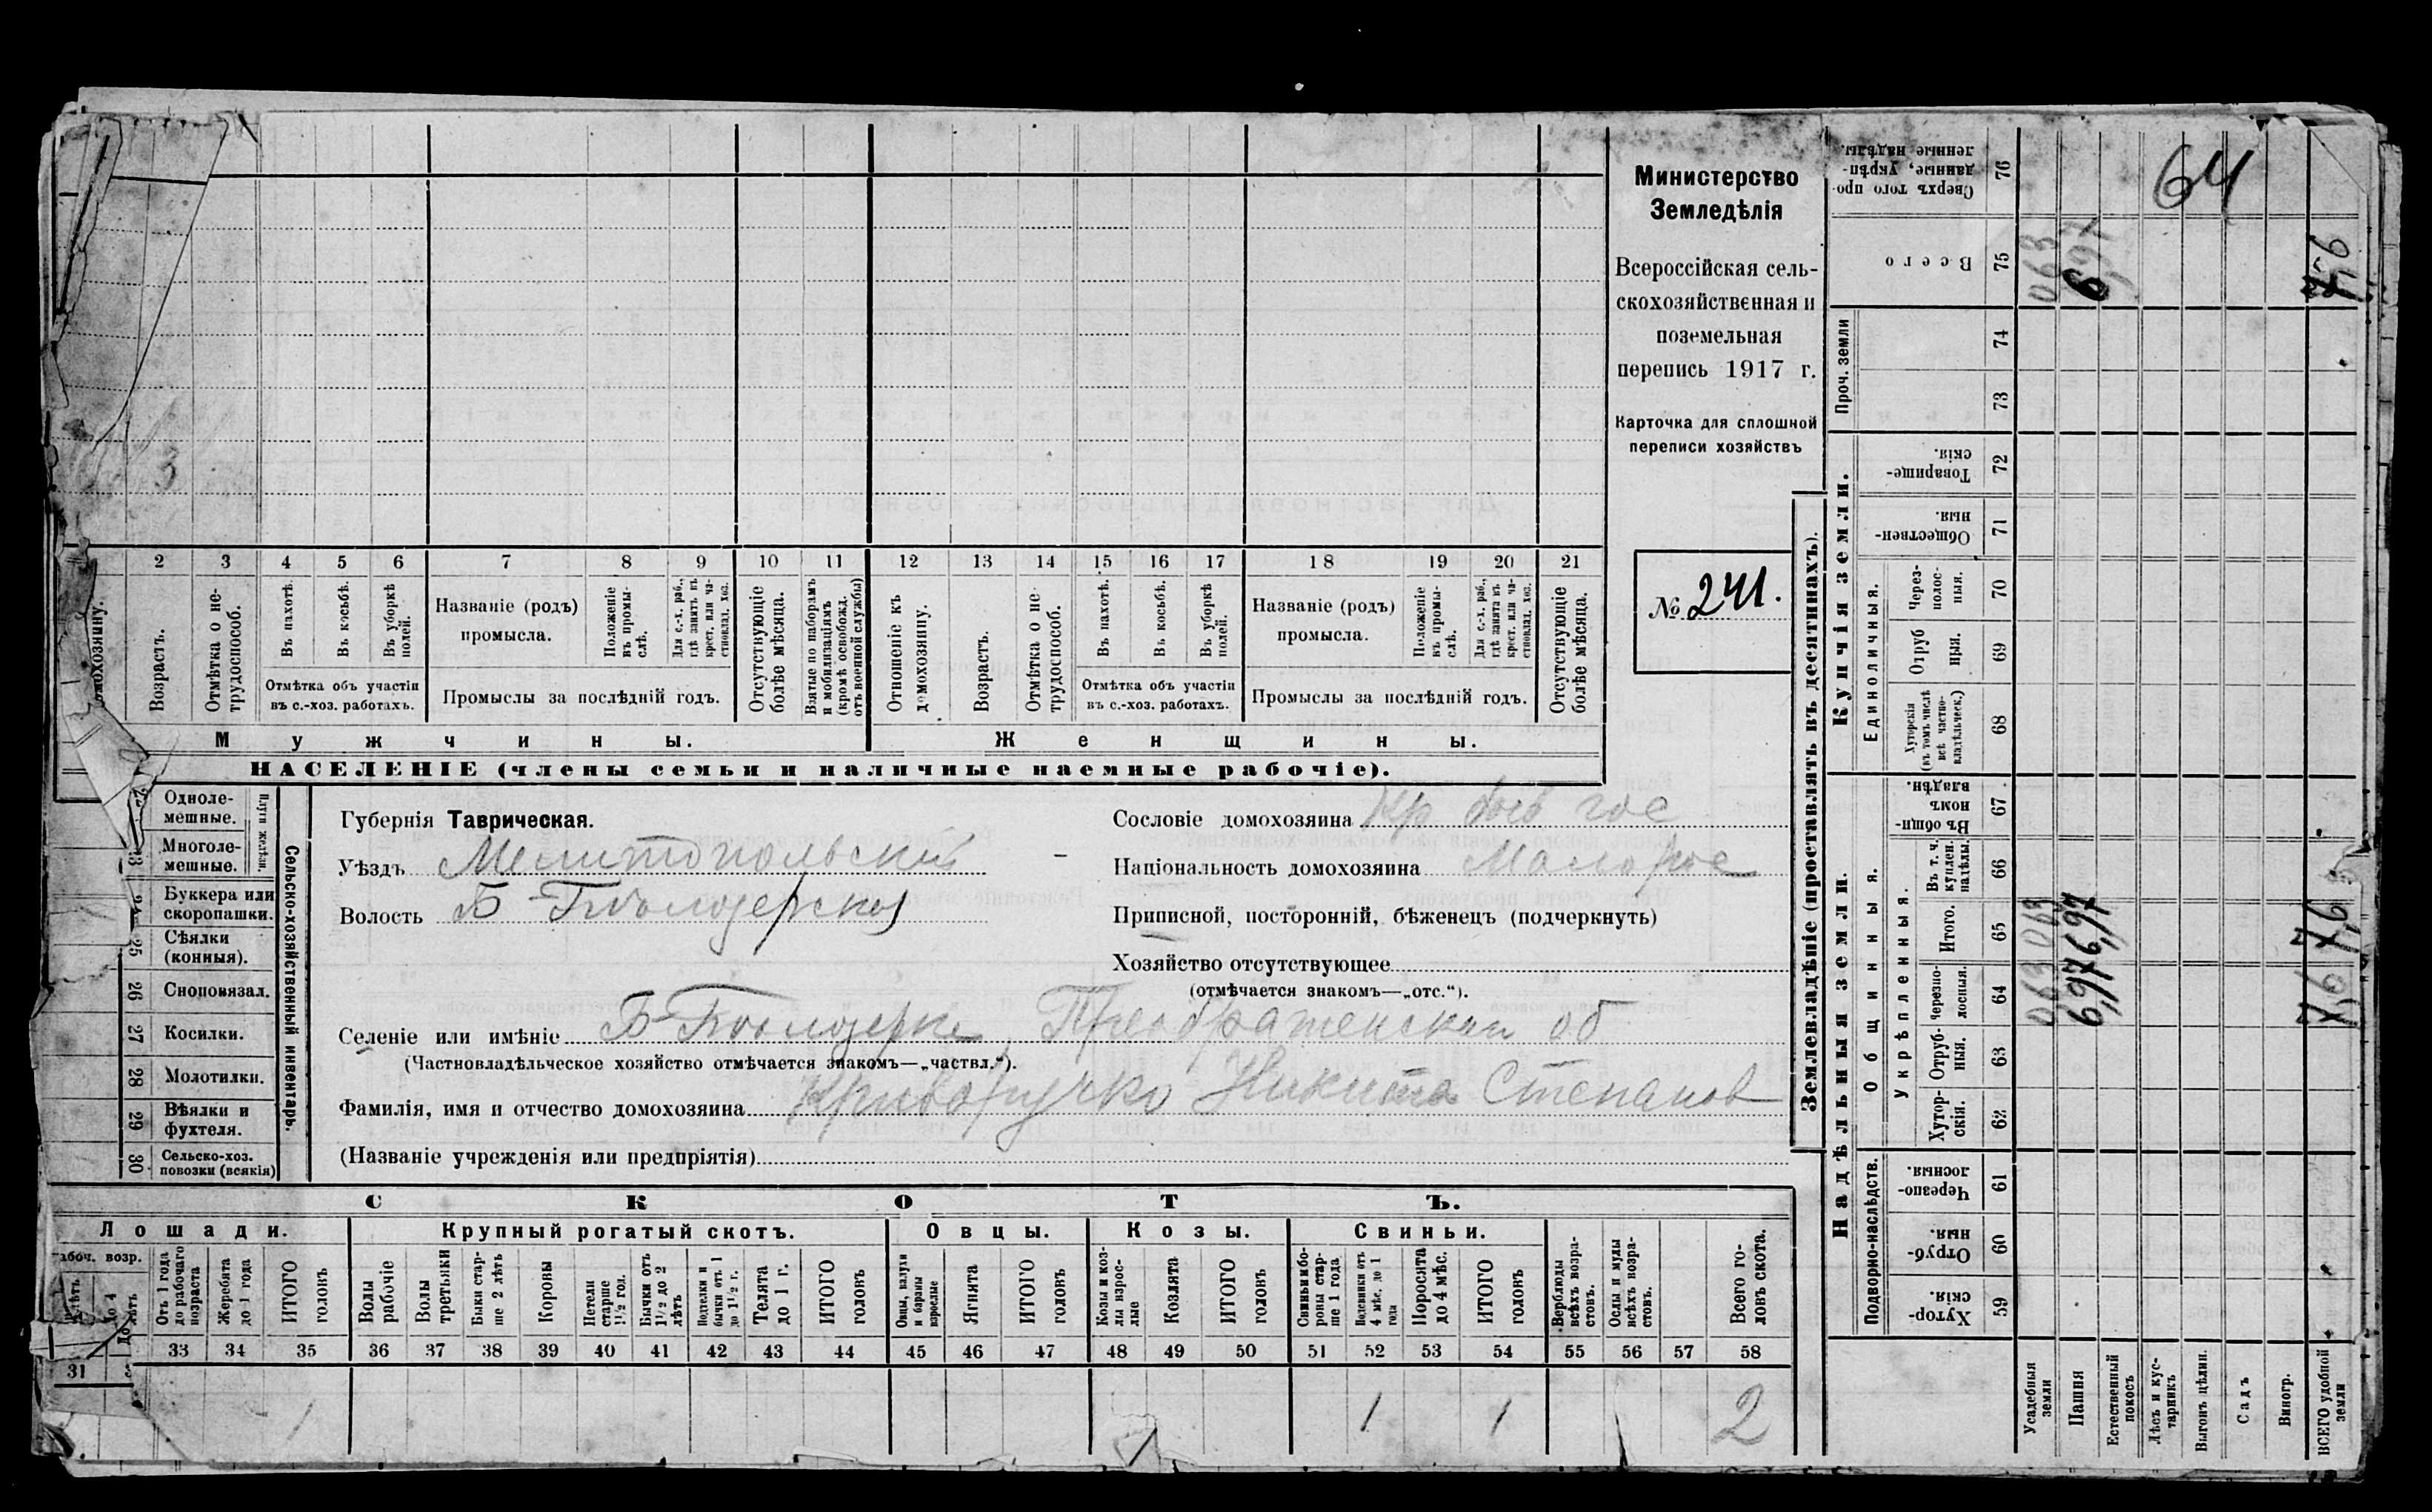 64
Министерство
Земледѣлія
Всероссійская сель-
скохозяйственная и
поземельная
перепись 1917 г.
Карточка для сплошной
переписи хозяйствъ
№ 241.
3
2 3 4 5 6 7 8 9 10 11 12 13 14 15 16 17 18 19 20 21
домохозяину.
Возрастъ.
Отмѣтка о не-
трудоспособ.
Въ пахотѣ.
Въ косьбѣ.
Въ уборкѣ
полей.
Отмѣтка объ участіи
въ с.-хоз. работахъ.
Названіе (родъ)
промысла.
Положеніе
въ промы-
слѣ.
Для с.-х. раб.,
гдѣ занятъ въ
крест. или ча-
стновлад. хоз.
Промыслы за послѣдній годъ.
Отсутствующіе
болѣе мѣсяца.
Взятые по наборамъ
и мобилизаціямъ
(кромѣ освобожд.
отъ военной службы)
Отношеніе къ
домохозяину.
Возрастъ.
Отмѣтка о не-
трудоспособ.
Въ пахотѣ.
Въ косьбѣ.
Въ уборкѣ
полей.
Отмѣтка объ участіи
въ с.-хоз. работахъ.
Названіе (родъ)
промысла.
Положеніе
въ промы-
слѣ.
Для с.-х. раб.,
гдѣ занята въ
крест. или ча-
стновлад. хоз.
Промыслы за послѣдній годъ.
Отсутствующіе
болѣе мѣсяца.
Мужчины.
Женщины.
НАСЕЛЕНІЕ (члены семьи и наличные наемные рабочіе).
Одноле-
мешные.
Многоле-
мешные.
Плуги желѣзн.
Буккера или
скоропашки.
25 Сѣялки
(конныя).
26 Сноповязал.
27 Косилки.
28 Молотилки.
29 Вѣялки и
фухтеля.
30 Сельско-хоз.
повозки (всякія)
Сельско-хозяйственный инвентарь.
Губернія Таврическая.
Уѣздъ Мелитопольскій
Волость Б-Бѣлозерская
Сословіе домохозяина Кр быв гос
Національность домохозяина Малорос
Приписной, посторонній, бѣженецъ (подчеркнуть)
Хозяйство отсутствующее
(отмѣчается знакомъ—„отс.“).
Селеніе или имѣніе Б-Бѣлозерка Преображенская об
(Частновладѣльческое хозяйство отмѣчается знакомъ—„частвл.“).
Фамилія, имя и отчество домохозяина Криворучко Никита Степанов
(Названіе учрежденія или предпріятія)
СКОТЪ.
Лошади.
Крупный рогатый скотъ.
Овцы.
Козы.
Свиньи.
возр.
Отъ 1 года
до рабочаго
возраста
Жеребята
до 1 года
ИТОГО
головъ
Волы
рабочіе
Волы
третьяки
Быки стар-
ше 2 лѣтъ
Коровы
Нетели
старше
1½ год.
Бычки отъ
1½ до 2
лѣтъ
Подтелки и
бычки отъ 1
до 1½ г.
Телята
до 1 г.
ИТОГО
головъ
Овцы, валухи
и бараны
взрослые
Ягнята
ИТОГО
головъ
Козы и коз-
лы взрос-
лые
Козлята
ИТОГО
головъ
Свиньи и бо-
ровы стар-
ше 1 года
Подсвинки отъ
4 мѣс. до 1
года
Поросята
до 4 мѣс.
ИТОГО
головъ
Верблюды
всѣхъ возра-
стовъ.
Ослы и мулы
всѣхъ возра-
стовъ.
Всего го-
ловъ скота.
31 33 34 35 36 37 38 39 40 41 42 43 44 45 46 47 48 49 50 51 52 53 54 55 56 57 58
1 1 1 2
Землевладѣніе (проставлять въ десятинахъ).
Купчія земли.
Надѣльныя земли.
Проч. земли
Единоличныя.
Общинныя.
Укрѣпленныя.
Подворно-наслѣдств.
Сверхъ того про-
данные, укрѣп-
ленные надѣлы.
76
Всего
75
74
73
Товарище-
скія.
72
Обществен-
ныя.
71
Через-
полос-
ныя.
70
Отруб
ныя.
69
Хуторскія
(въ томъ числѣ
всѣ частно-
владѣльческ.)
68
Въ общин-
номъ
владѣн.
67
Въ т. ч.
куплен.
надѣлы.
66
Итого.
65
Черезпо-
лосныя.
64
Отруб-
ныя.
63
Хутор-
скія.
62
Черезпо-
лосныя
61
Отруб-
ныя
60
Хутор-
скія.
59
Усадебныя
земли
063 063 063
Пашня
6,97 6,97 6,97
Естественный
покосъ
Лѣсъ и кус-
тарникъ
Выгонъ цѣлин.
Садъ
Виногр.
ВСЕГО удобной
земли
7,6 7,6 7,6